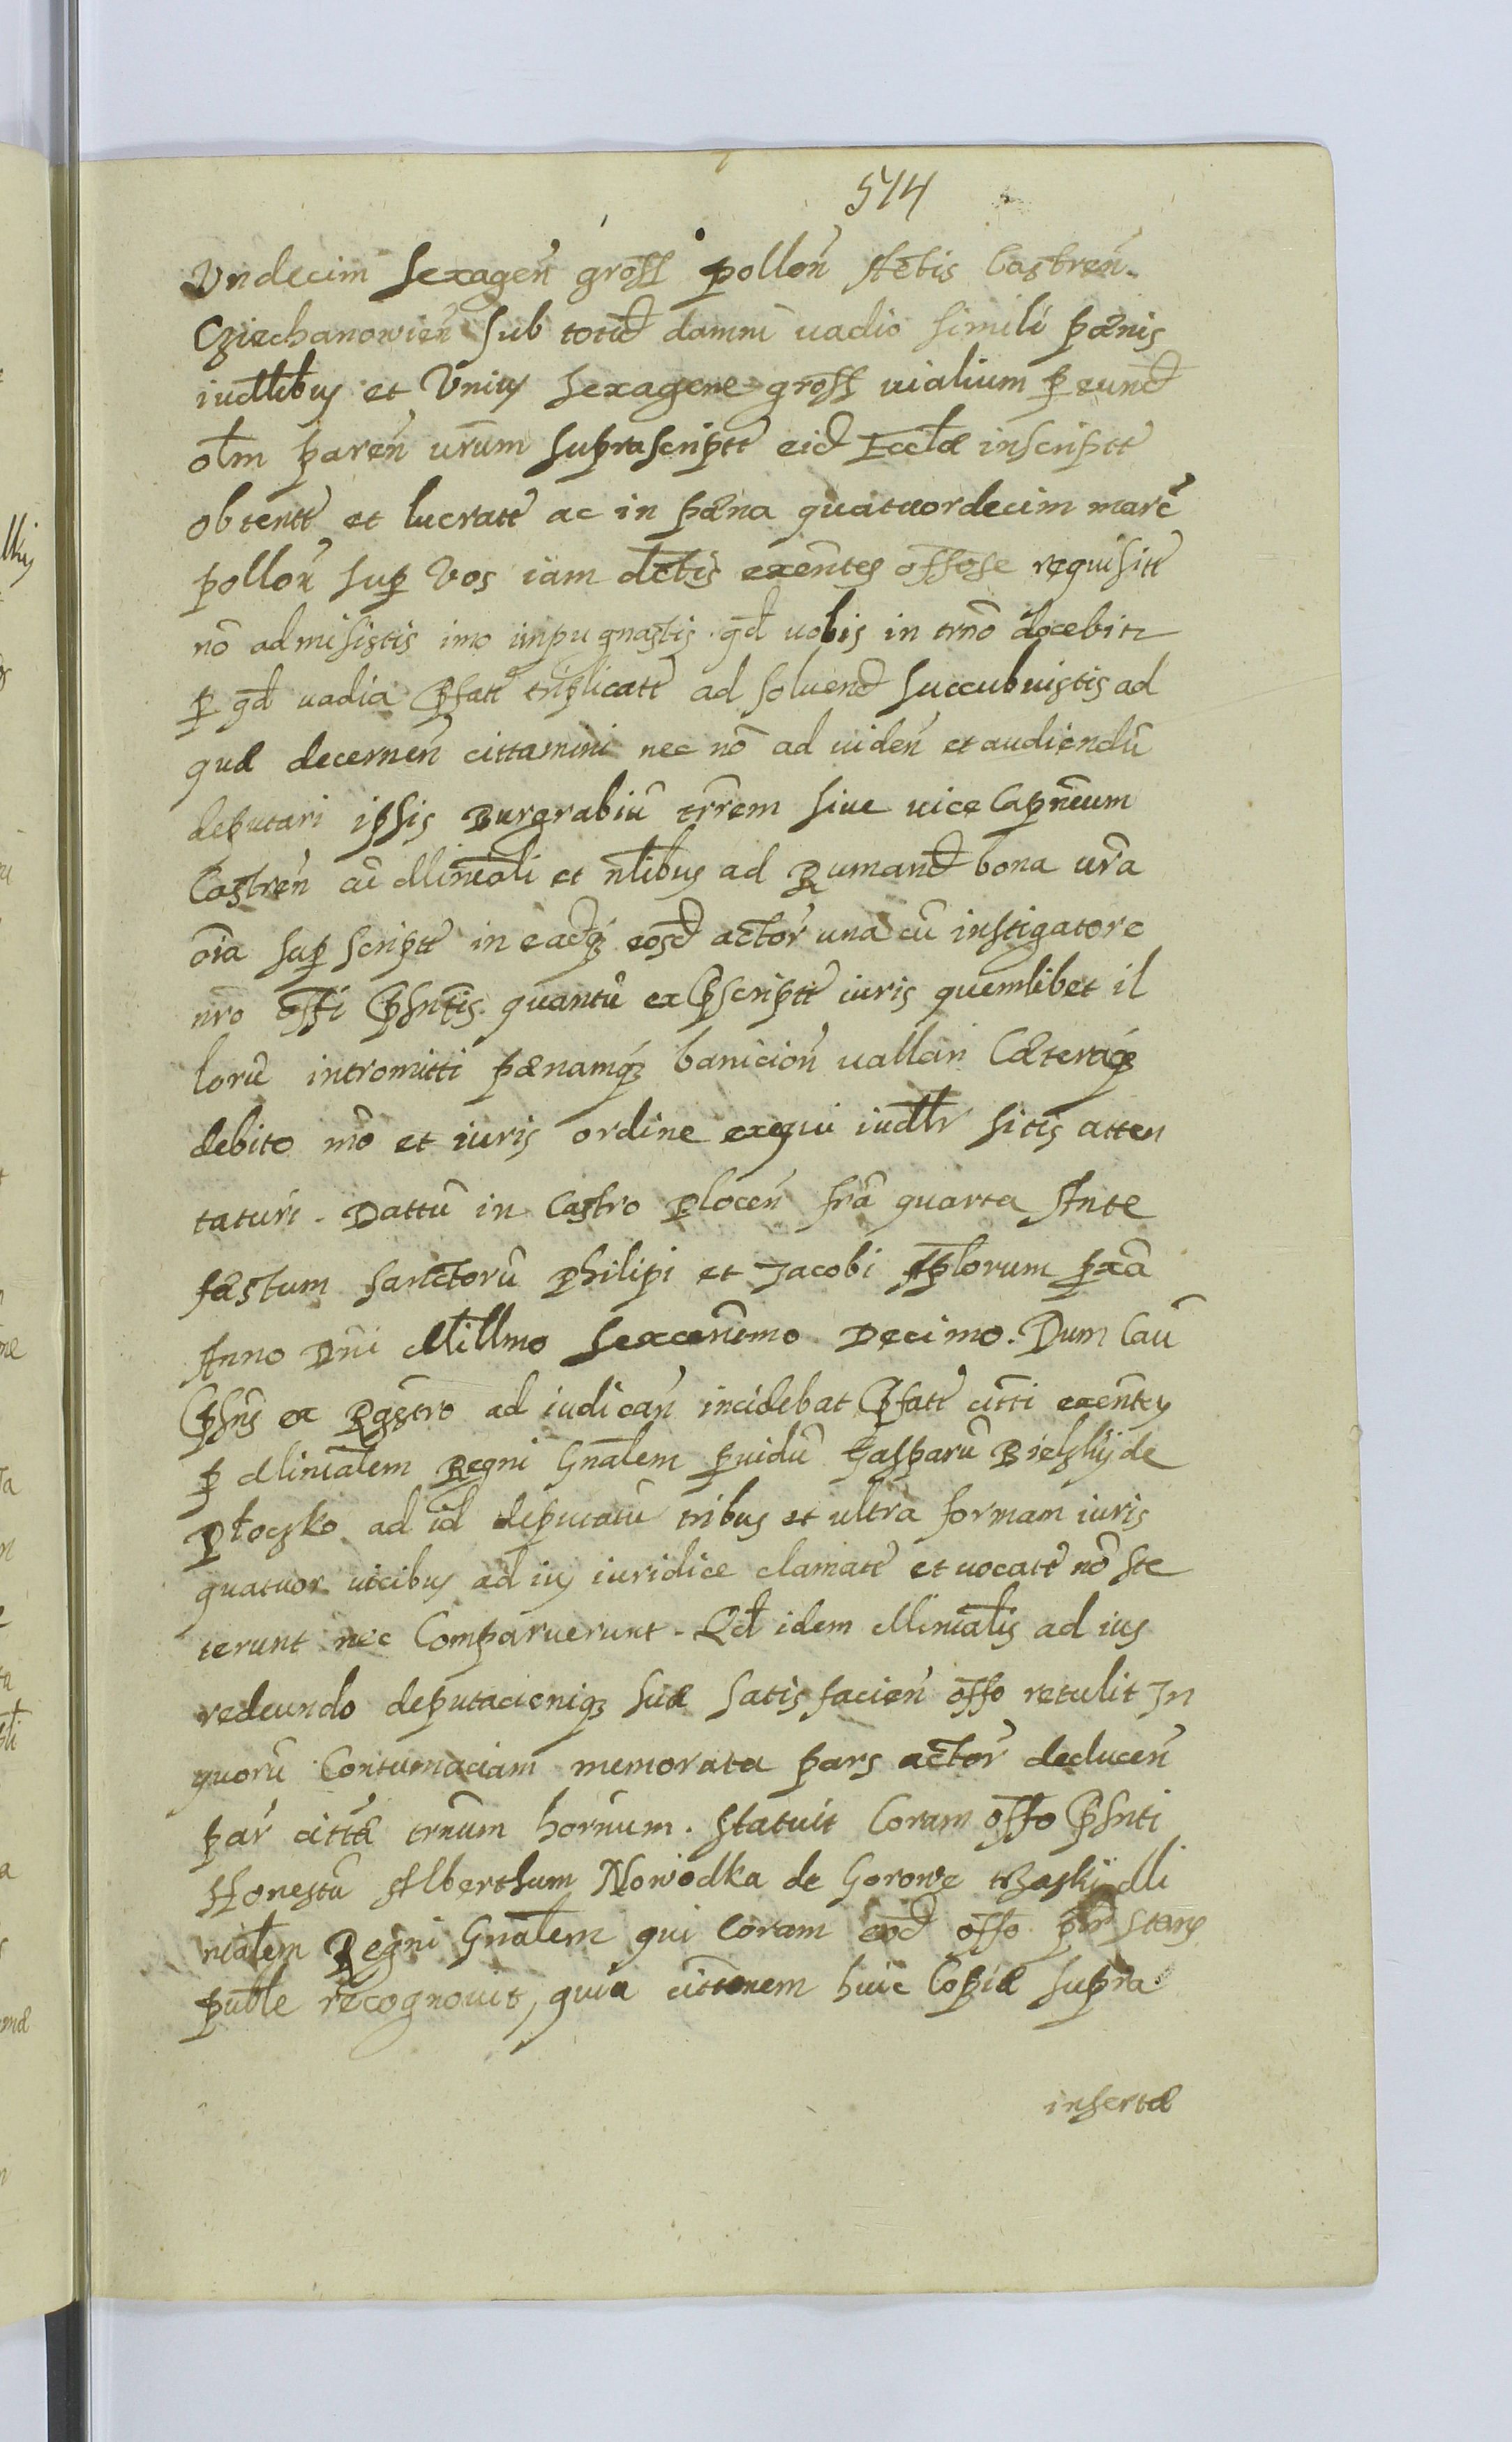 514
Vndecim sexagen̄ gross̄ pollon̄ Actis Castren̄
Cziechanowien̄ sub totid̄ damni uadio simili pænis
iudllibus et Vnius sexagene gross̄ uialium p eund̄
olm paren̄ urum suprascriptt eid̄ Eccłæ inscriptt
obtentt et lucratt ac in pæna quatuordecim marc̄
pollon̄ sup Vos iam dctis exentes offose requisitt
nō admisistis imo impugnastis qd uobis in trnō docebitr
p qd uadia Pfatt triplicatt ad soluend̄ succubuistis ad
quæ decernen̄ cittamini nec nō ad uiden̄ et audiendū
deputari ipsis Burgrabiū trrem siue uice Capneum
Castren̄ cū Mliniali et nlibus ad Rumand̄ bona ura
oīa sup scriptt in eadq; eosd̄ actor̄ una cū instigatore
nrō Offi Psntis quantū ex Pscriptt iuris quemlibet il
lorū intromitti pænamq; banicion̄ uallari Cæteraq;
debito mō et iuris ordine exequi iudllr sitis atten
taturi. Dattū in Castro Plocen̄ fra quarta Ante
fæstum sanctorū Philipi et Jacobi Aplorum pxa
Anno Dni Millmo sexcenmo Decimo. Dum Cau
Psns ex Rgstro ad iudican̄ incidebat Pfatt citti exentes
p Mlinialem Regni Gnalem puidū Gasparū Bielskij de
Płoczko ad id deputatū tribus et ultra formam iuris
quatuor uicibus ad ius iuridice clamatt et uocatt nō ste
terunt nec Comparuerunt. Qd idem Mlinialis ad ius
redeundo deputacioniq; suæ satisfacien̄ offo retulit In
quorū Contumaciam memorata pars actor̄ deducen̄
par̄ citta trnum hornum. Statuit Coram offo Psnti
Honestū Alberthum Nowodka de Gorowe Mli
nialem Regni Gnalem qui Coram eod̄ offo plr stans
puble recognouit, quia cittonem huic Copiæ supra
insertæ